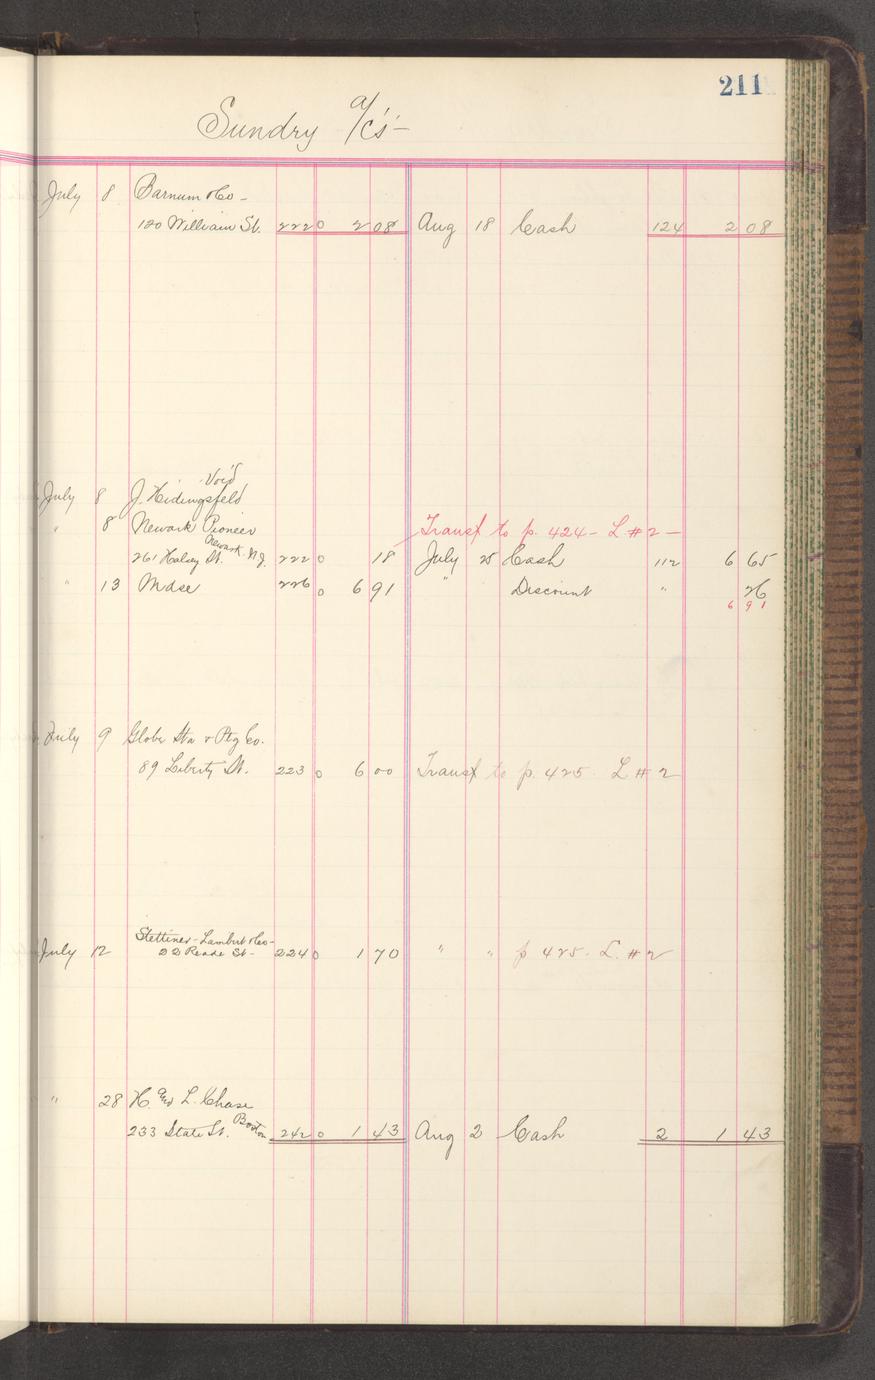 211
Sundry a/c's –
July 8 Barnum & Co –
120 William St. 222 0 2 08 Aug 18 Cash 124 2 08
Void
July 8 J. Hidingsfeld
" 8 Newark Pioneer Transf to p. 424 – L # 2 –
Newark N.J.
261 Halsey St. 222 0 18 July 25 Cash 112 6 65
" 13 Mdse 226 0 6 91 " Discount " 26
6 91
July 9 Globe Sta & Ptg Co.
89 Liberty St. 223 0 6 00 Transf to p. 425. L # 2
Stettiner – Lambert & Co –
July 12 22 Reade St – 224 0 1 70 " " p 425. L. # 2
" 28 H. and L. Chase
233 State St. Boston 242 0 1 43 Aug 2 Cash 2 1 43